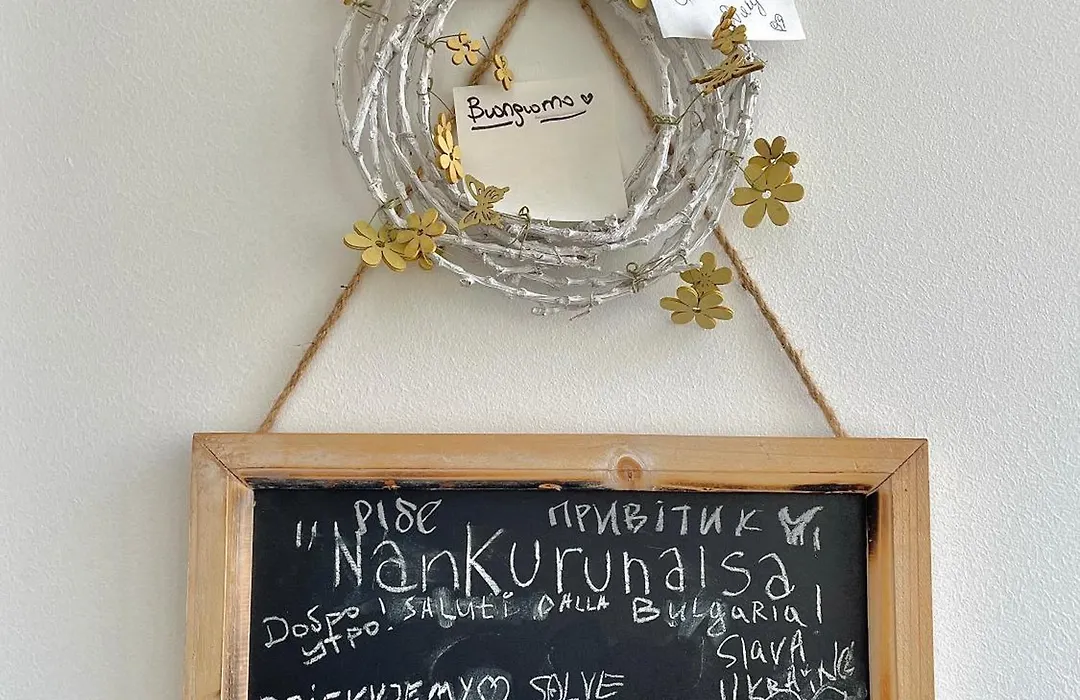 Buongiorno
рібе ПРИВІТИК
"Nankurunaisa
Добро утро! SALUTI DALLA BULgARIA!
SlavA
UKRAINE
DZIĘKUJEMY SALVE